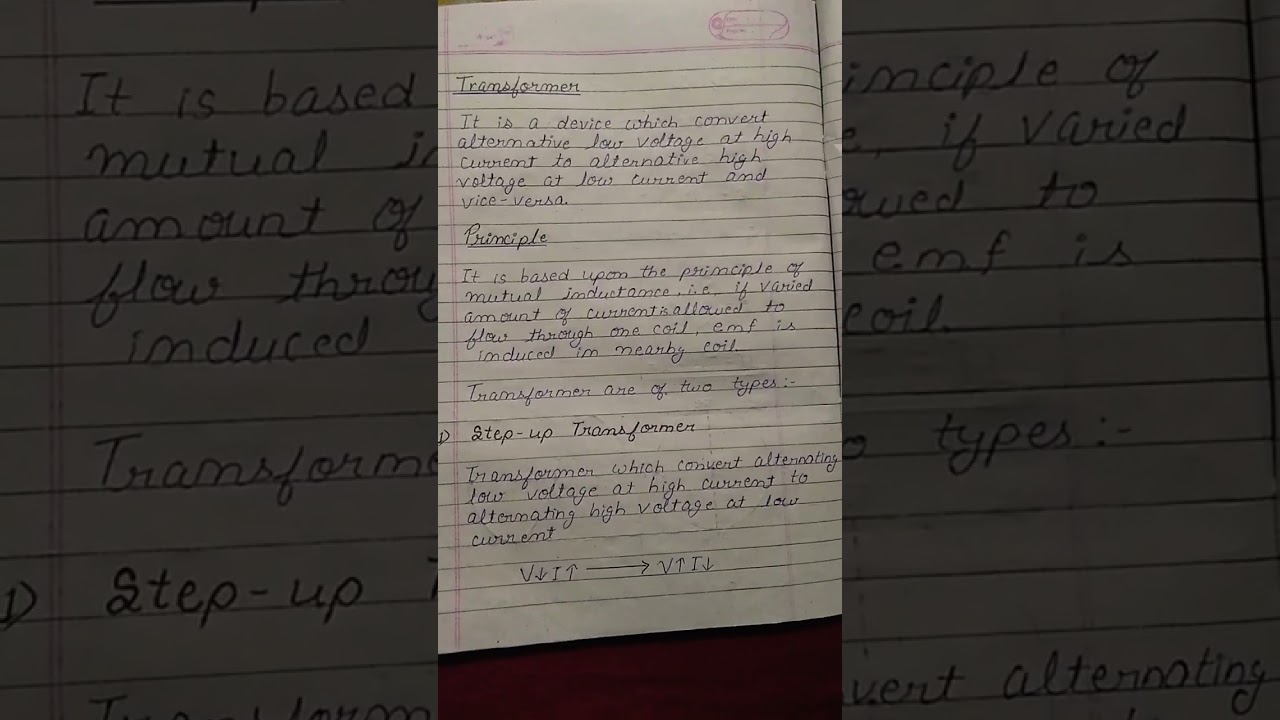 Transformer
It is a device which convert
alternative low voltage at high
current to alternative high
voltage at low current and
vice-versa.
Principle
It is based upon the principle of
mutual inductance, i.e if varied
amount of current is allowed to
flow through one coil, emf is
induced in nearby coil.
Transformer are of two types:-
1) Step-up Transformer
Transformer which convert alternating
low voltage at high current to
alternating high voltage at low
current
V↓I↑ ⟶ V↑I↓